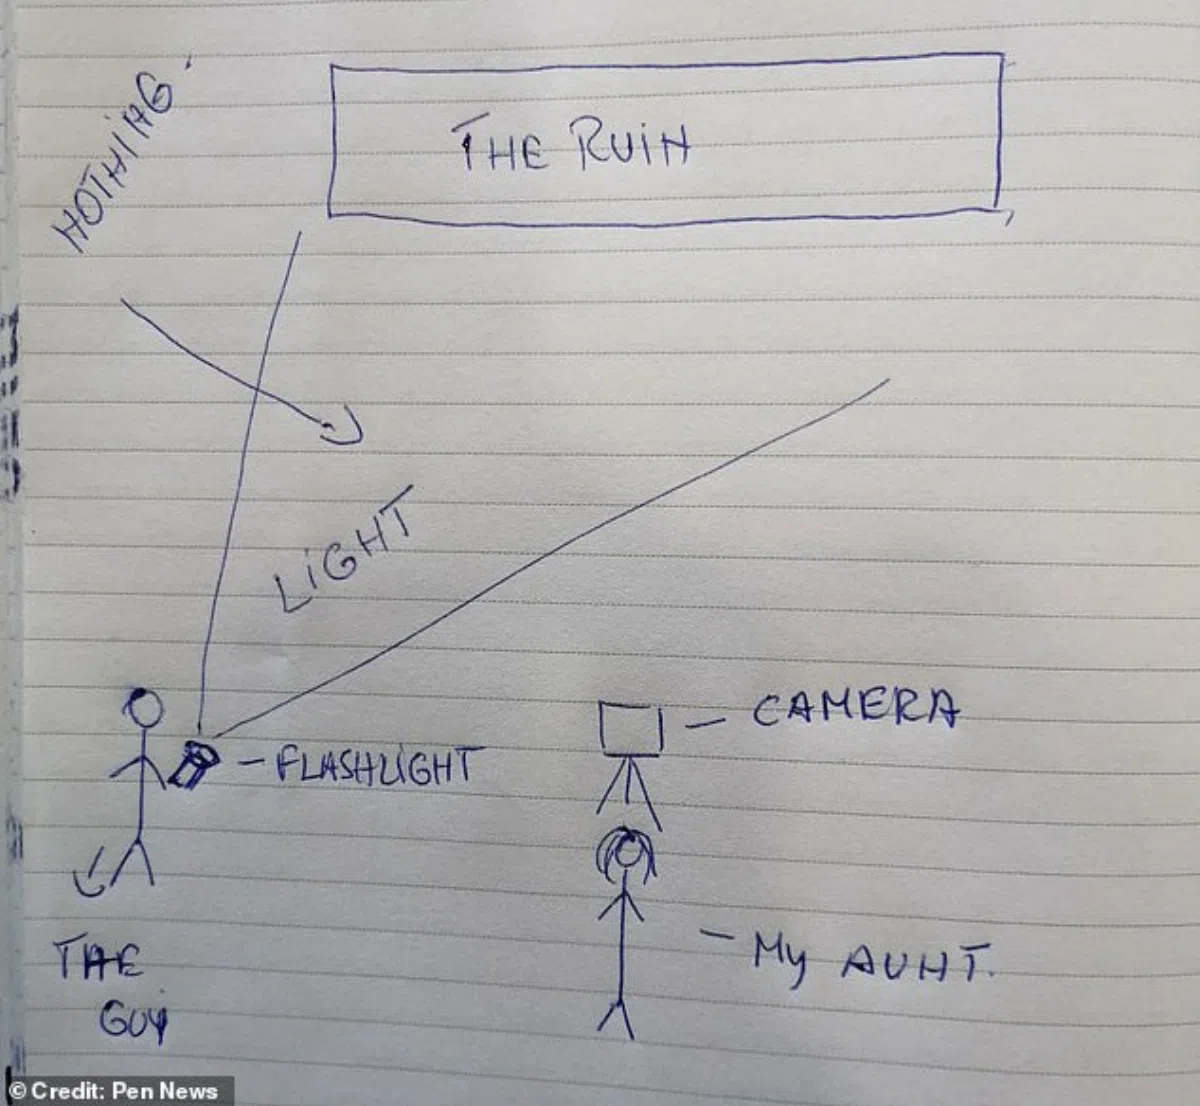 NOTHING.
THE RUIN
LIGHT
CAMERA
FLASHLIGHT
THE
GUY
My AUNT.
© Credit: Pen News